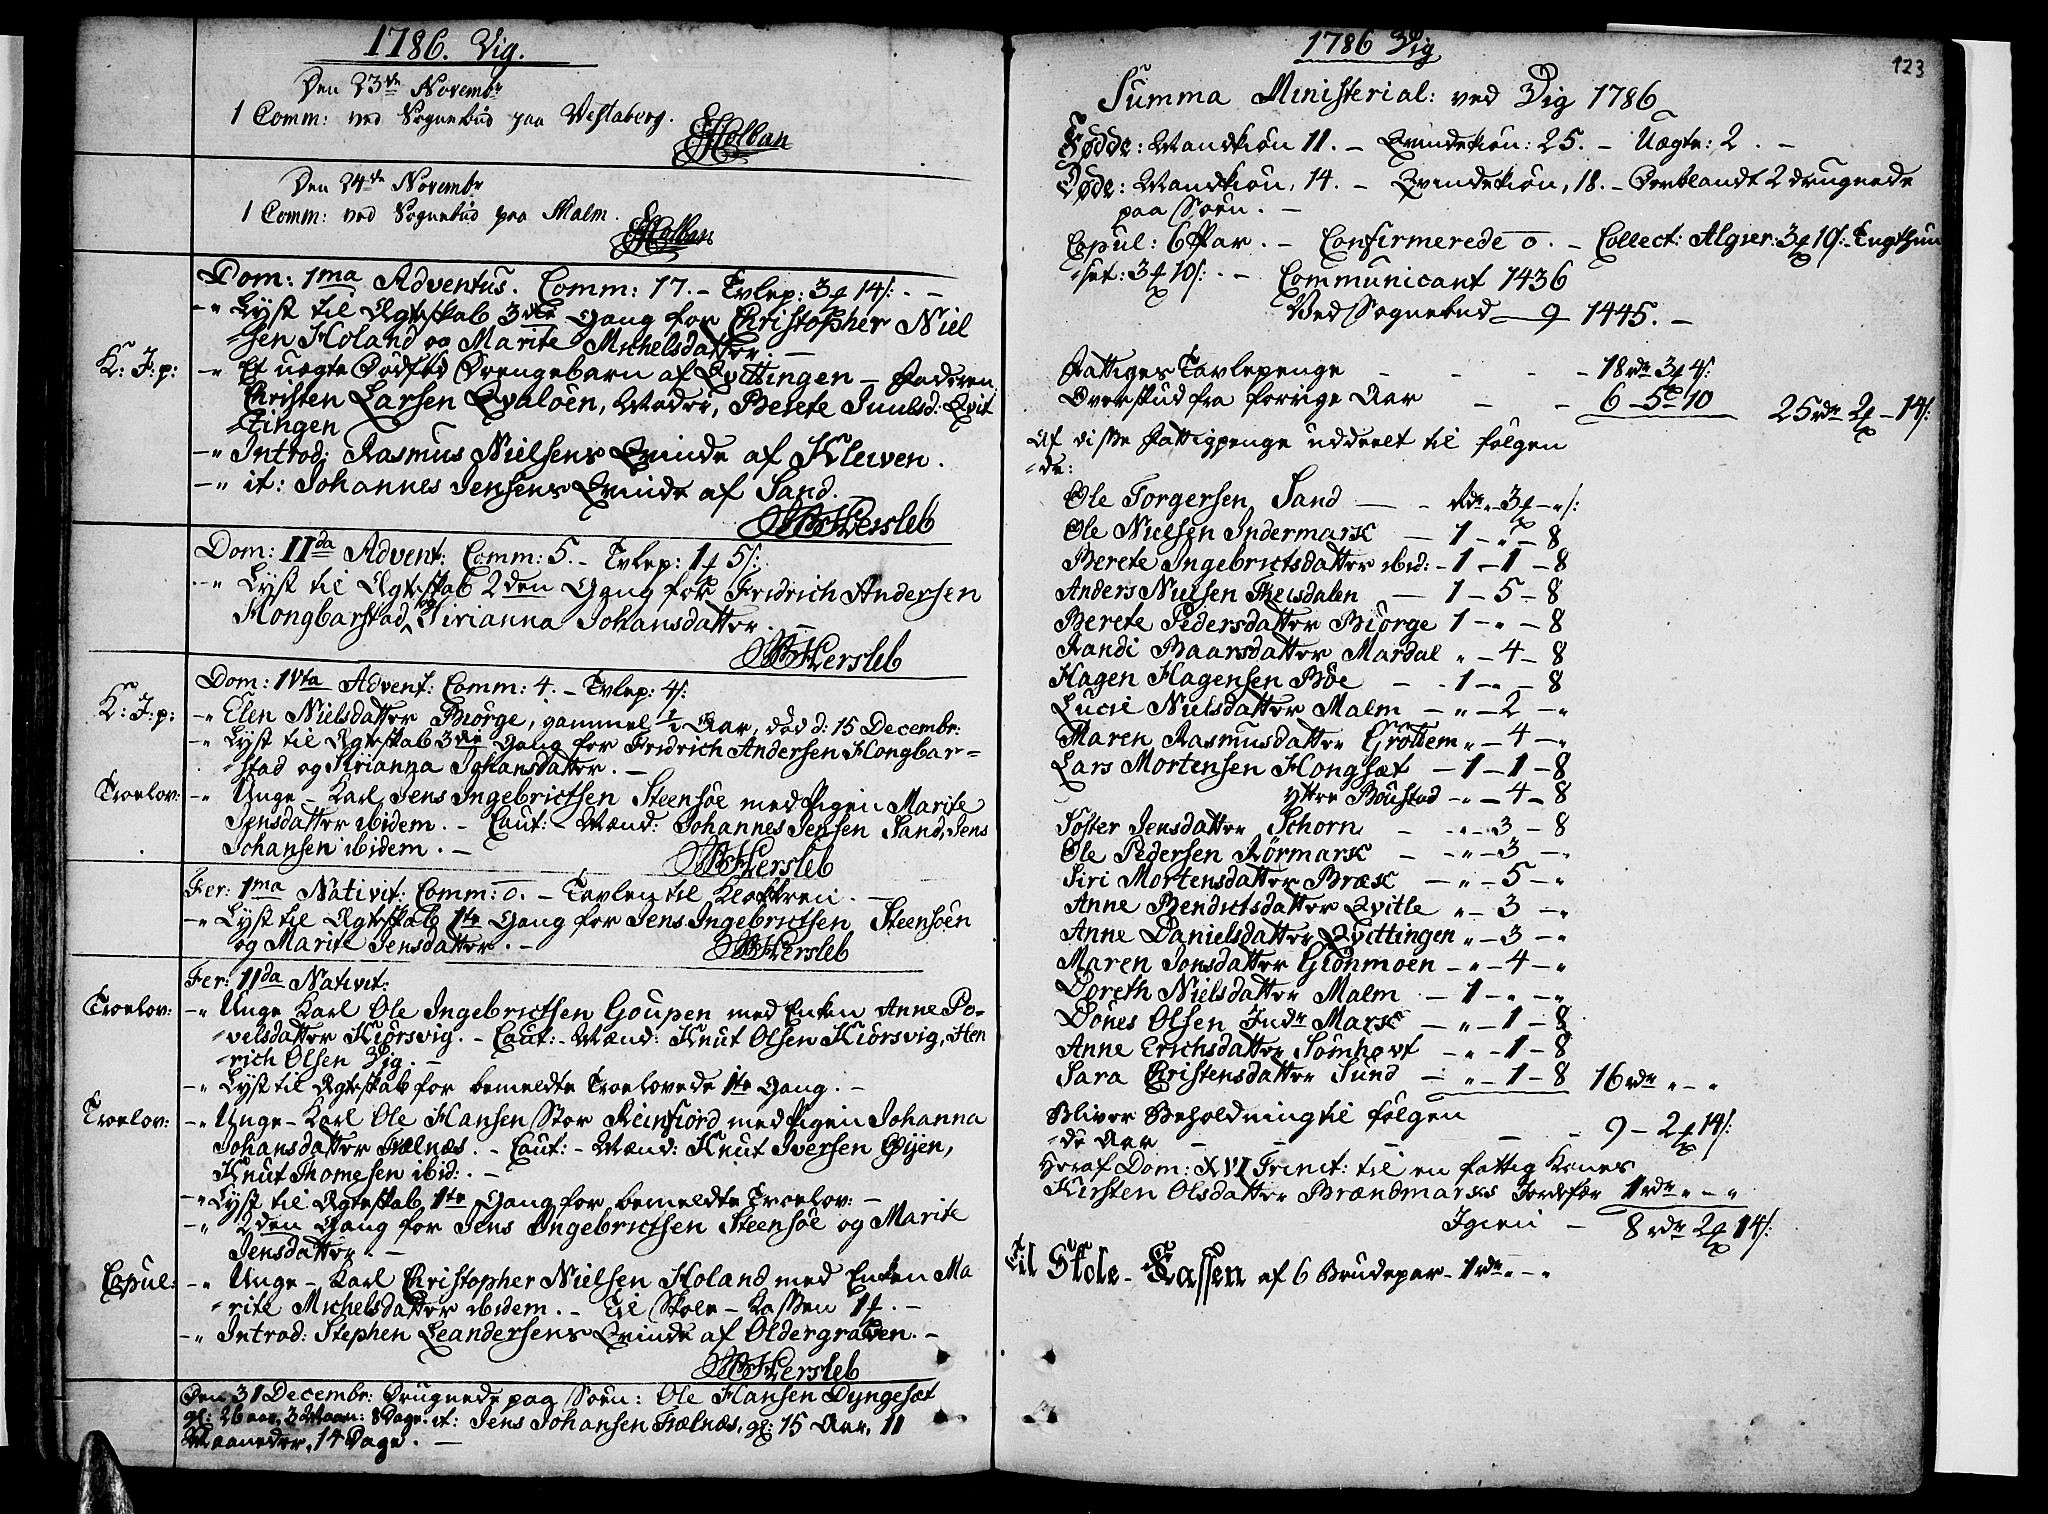 1786. Vig.
Den 23de Novembr
1 Comm: ved Sognebud paa Vestaberg.
Holban
Den 24de Novembr
1 Comm: ved Sognebud paa Malm.
Holban
Dom: 1ma Adventus. Comm: 17. - Tvlep: 3 14 s:. -
-" Lyst til Ægteskab 3die Gang for Christopher Niel
sen Holand og Marite Michelsdatter. -
K: J: p: -" Et uægte Dødfød Drengebarn af Qvittingen - Faderen
Christen Larsen Qvaløen, Moder, Berete Juulsd: Qvit
tingen
-" Introd: Rasmus Nielsens Qvinde af Kleven.
-" it: Johannes Jensens Qvinde af Sand.
Hersleb
Dom: IIda Advent: Comm: 5. - Tvlep: 1 5 s:.
-" Lyst til Ægteskab 2den Gang for Fridrich Andersen
Hongbarstad og Sirianna Johansdatter. -
Hersleb
Dom: IVta Advent: Comm: 4. - Tvlep: 4 s:
K: J: p: -" Elen Nielsdatter Biørge, gammel 1/2 Aar, død d: 15 Decembr:
-" Lyst til Ægteskab 3die Gang for Fridrich Andersen Hongbar-
stad og Sirianna Johansdatter. -
Troelov: -" Unge-Karl Jens Ingebrictsen Steensøe med Pigen Marite
Jensdatter ibidem. - Caut:-Mænd: Johannes Jensen Sand, Jens
Johansen ibidem. -
Hersleb
Fer: 1ma Nativit: Comm: o. - Tavlen til Klokkren. -
-" Lyst til Ægteskab 1te Gang for Jens Ingebrictsen Steensøen
og Marite Jensdatter. -
Hersleb
Fer: IIda Nativit:
Troelov: -" Unge Karl Ole Ingebrictsen Goupen med Enken Anne Po-
velsdatter Kiørsvig. - Caut:-Mænd: Knut Olsen Kiørsvig, Hen
rich Olsen Vig. -
-" Lyst til Ægteskab for bemeldte Troelovede 1te Gang. -
Troelov: -" Unge-Karl Ole Hansen Stor Reinfiord med Pigen Johanna
Johansdatter Følnæs. - Caut:-Mænd: Knut Iversen Øyen,
Knut Thomesen ibid:. -
-" Lyst til Ægteskab 1te Gang for bemeldte Troelov: -
-" 2den Gang for Jens Ingebrictsen Steensøe og Marite
Jensdatter. -
Copul: -" Unge-Karl Christopher Nielsen Holand med Enken Ma
rite Michelsdatter ibidem. - Til Stole-Kassen 1. -
-" Introd: Stephen Leandersens Qvinde af Oldergraven. -
Hersleb
Den 31 Decembr: Drugnede paa Søen: Ole Hansen Dyngesæt
gl: 26 aar, 3 Maan: 8 Dage. it: Jens Johansen Følnæs, gl: 15 Aar, 11
Maaneder, 14 Dage. -
1786 Vig
123
Summa Ministerial: ved Vig 1786
Fødde: Mandkiøn 11. - Qvindekiøn: 25. - Uægte: 2. -
Døde: Mandkiøn, 14. - Qvindekiøn, 18. - Deriblandt 2 drugnede
paa Søen. -
Copul: 6 Par. - Confirmerede o. - Collect: Algier: 3 10 s:- Tugthuu
set: 3 10 s:. - Communicant 1436
Ved Sognebud - 9 1445. -
Fattiges Tavlepenge - - - - 18 rdr 3 4 s:
Overskud fra forrige Aar - - 6 - 5 - 10 25 rdr 2 - 14 s:
Af disse Fattigpenge uddeelt til følgen
de:
Ole Torgersen Sand - - rdr " 3 - " s:
Ole Nielsen Indermark - 1 - " - 8
Berete Ingebrictsdatter ibid: - 1 - 1 - 8
Anders Nielsen Theisdalen - 1 - 5 - 8
Berete Pedersdatter Biørge 1 - " - 8
Randi Baarsdatter Mardal " - 4 - 8
Hagen Hagensen Bøe - - 1 - " - 8
Lucie Nielsdatter Malm - " - 2 - "
Maren Rasmusdatter Grøttem " - 4 - "
Lars Mortensen Hongsæt - 1 - 1 - 8
yttre Boustad - " - 4 - 8
Søster Jensdatter Schorn - - " - 3 - 8
Ole Pedersen Rørmark - - " - 3 - "
Siri Mortensdatter Bræk - " - 5 - "
Anne Bendictsdatter Qvitle " - 3 - "
Anne Danielsdatter Qvittingen " - 3 - "
Maren Jonsdatter Grønmoen - " - 4 - "
Doreth Nielsdatter Malm - 1 - " - "
Dønes Olsen Indr Mark - " - 1 - 8
Anne Erichsdatter Sømhovt - " - 1 - 8
Sara Christensdatter Sund - " - 1 - 8 16 rdr " - "
Bliver Beholdning til følgen
de Aar - - - - - 9 - 2 14 s:
Heraf Dom: XVI Trinit: til en fattig Kones
Kirsten Olsdatter Brændmarks Jordefær 1 rdr " - "
Igien - 8 rdr 2 14 s:
Til Stole-Cassen af 6 Brudepar - 1 rdr " - "